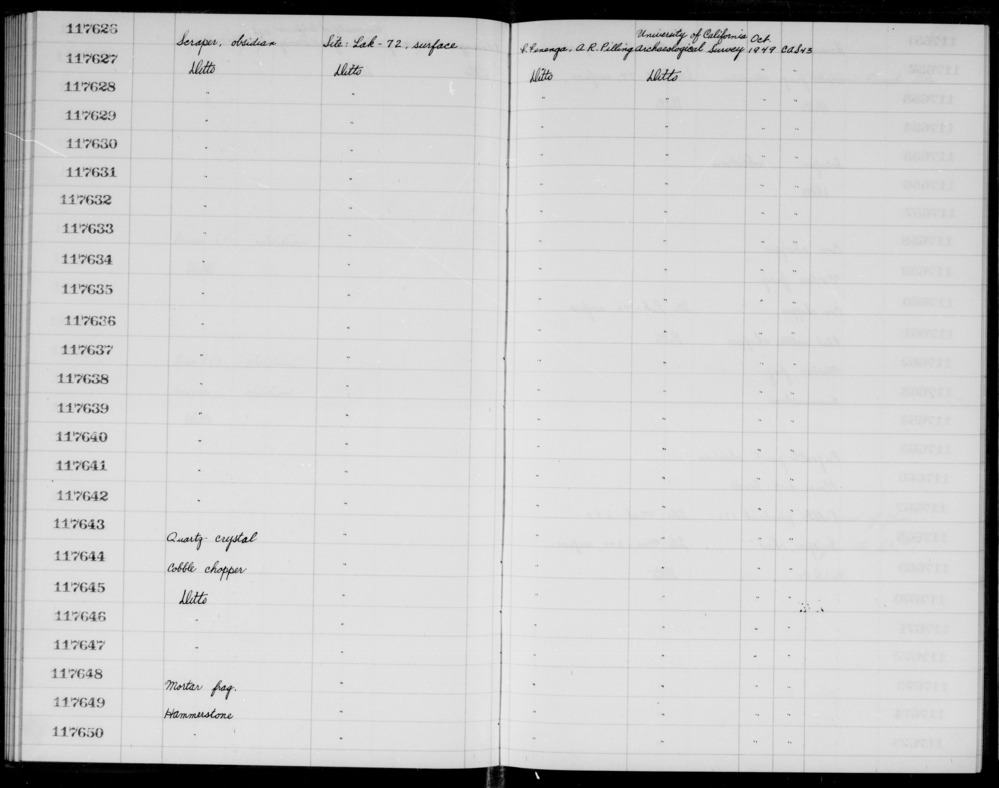 117626 Scraper, obsidian Site: Lak-72, surface A. R. Pilling University of California Archaeological Survey Oct. 1949 CAS43
117627 Ditto Ditto Ditto Ditto " "
117628 " " " " " "
117629 " " " " " "
117630 " " " " " "
117631 " " " " " "
117632 " " " " " "
117633 " " " " " "
117634 " " " " " "
117635 " " " " " "
117636 " " " " " "
117637 " " " " " "
117638 " " " " " "
117639 " " " " " "
117640 " " " " " "
117641 " " " " " "
117642 " " " " " "
117643 Quartz crystal " " " " "
117644 Cobble chopper " " " " "
117645 Ditto " " " " "
117646 " " " " " "
117647 " " " " " "
117648 Mortar frag. " " " " "
117649 Hammerstone " " " " "
117650 " " " " " "